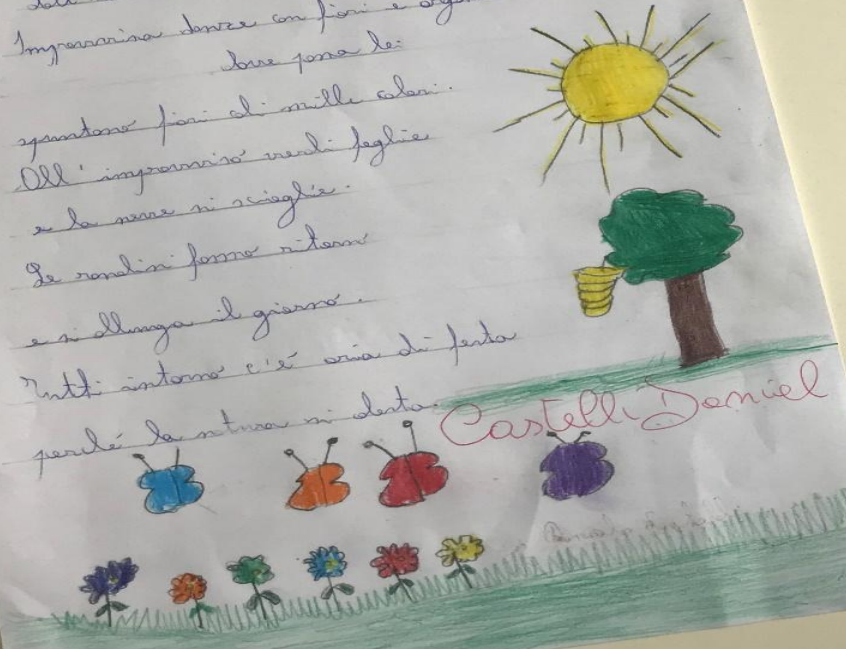 Improvvisa danze con fiori e
dove posa lei
spuntano fiori di mille colori.
All' improvviso verdi foglie
e la neve si scioglie.
Le rondini fanno ritorno
e si allunga il giorno.
Tutti intorno c'è aria di festa
perché la ntura si desta.
Castelli Daniel